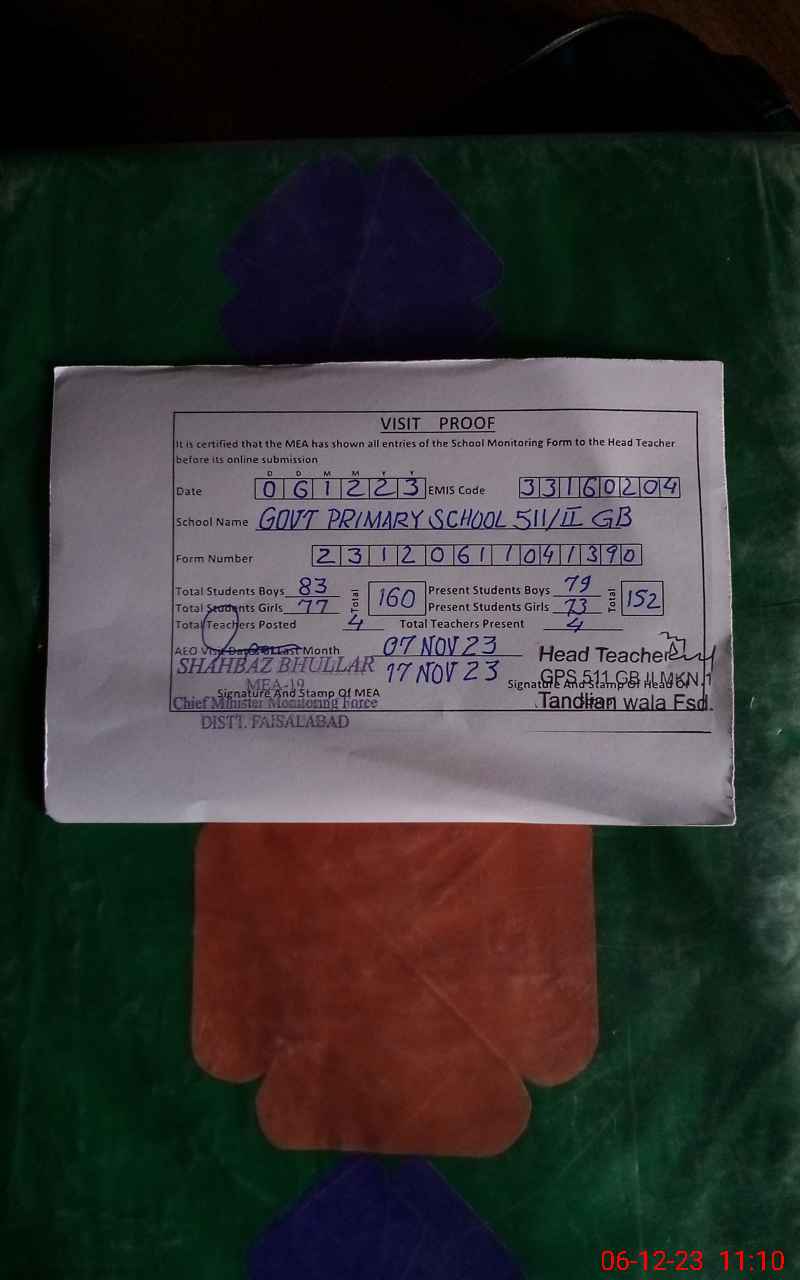 VISIT PROOF
It is certified that the MEA has shown all entries of the School Monitoring Form to the Head Teacher
before its online submission
D D M M Y Y
Date 0 6 1 2 2 3 EMIS Code 3 3 1 6 0 2 0 4
School Name GOVT PRIMARY SCHOOL 511/II GB
Form Number 2 3 1 2 0 6 1 1 0 4 1 3 9 0
Total Students Boys 83 Total 160 Present Students Boys 79 Total 152
Total Students Girls 77 Present Students Girls 73
Total Teachers Posted 4 Total Teachers Present 4
AEO Visit Date Of Last Month 07 NOV 23
17 NOV 23
SHAHBAZ BHULLAR
MEA-19
Signature And Stamp Of MEA
Chief Minister Monitoring Force
DISTT. FAISALABAD
Head Teacher
GPS 511 GB II MKN.1
Signature And Stamp Of Head Of
Tandlian wala Fsd.
06-12-23 11:10